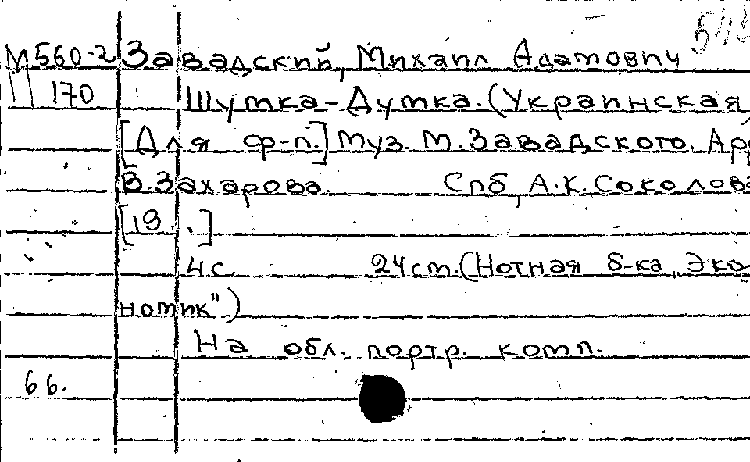 М560-2 Завадский, Михаил Адамович
170 Шутка-Думка. (Украинская
[Для ф-п.] Муз. М. Завадского. Ар
В. Захарова. Спб, А.К. Соколова
[19 .]
4 с. 24 см. (Нотная б-ка "Эко
номик")
На обл. портр. комп.
66.